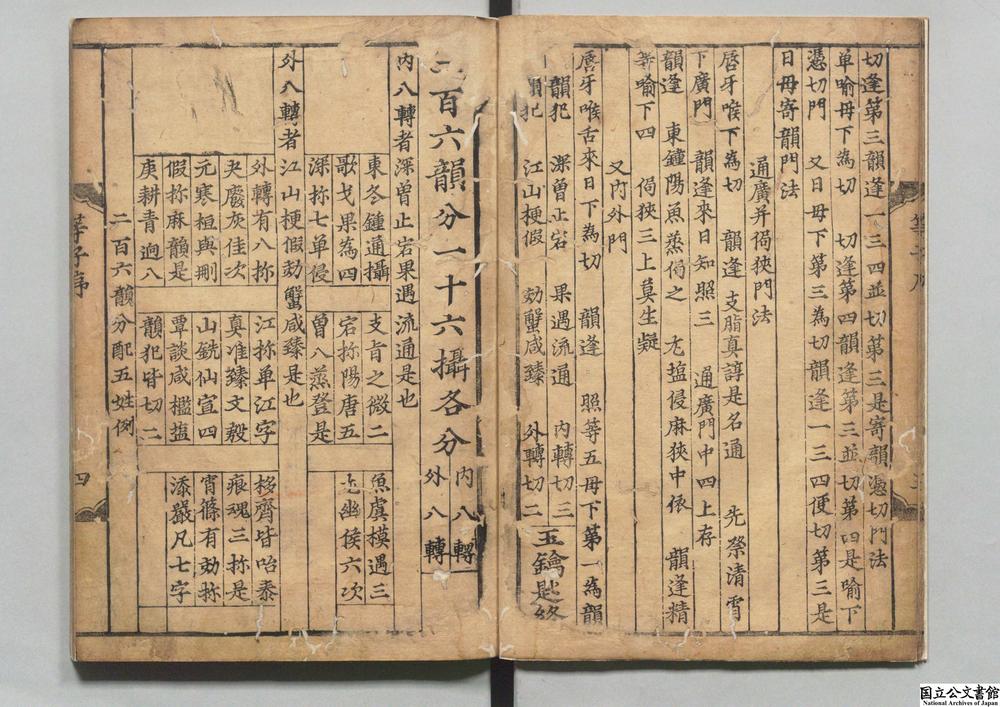 切逢第三韻逢一三四並切第三是寄韻憑切門法
单喻母下為切　切逢第四韻逢第三並切第四是喻下
憑切門　又日母下第三為切韻逢一三四便切第三是
日母寄韻門法
通廣并侷狹門法
唇牙喉下為切　韻逢　支脂真諄是名通　先祭清宵
下廣門　韻逢來日知照三　通廣門中四上存
韻逢　東鐘陽魚蒸侷之　尤塩侵麻狹中依　韻逢精
等喻下四　侷狹三上莫生疑
又內外門
唇牙喉舌來日下為切　韻逢　照等五母下第一為韻
韻犯　深曾止宕　果遇流通　內轉切三
韻犯　江山梗假　効蟹咸臻　外轉切二　玉鑰匙終
二百六韻分一十六攝各分
內八轉
外八轉
內八轉者深曾止宕果遇流通是也
東冬鍾通攝　支旨之微二　魚虞模遇三
歌戈果為四　宕称陽唐五　尤幽侯六次
深称七单侵　曾八蒸登是
外八轉者江山梗假効蟹咸臻是也
外轉有八称　江称单江字　移齊皆咍泰
夬廢灰佳次　真准臻文殷　痕魂三称是
元寒桓與刪　山銑仙宣四　宵篠有効称
假称麻韻是　覃談咸檻塩　添嚴凡七字
庚耕青迥八　韻犯皆切二
二百六韻分配五姓例
等子序
四
国立公文書館
National Archives of Japan